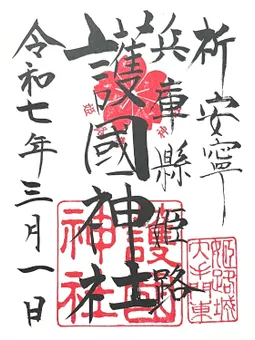 祈安寧
兵庫縣姫路
護國神社
令和七年三月一日
護國
神社
姫路城
大手門東